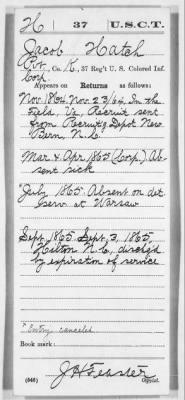 H | 37 | U.S.C.T.
Jacob Hatch
Pvt., Co. K, 37 Reg't U. S. Colored Inf.
Corp.
Appears on Returns as follows:
Nov. 1864. Nov. 23/64, In the
Field, Va, Recruit sent
from Recruit'g Depot New
Bern, N.C.
Mar. & Apr. 1865 (Corp.) Ab-
sent sick
*July, 1865 Absent on det.
serv. at Warsaw
Sept. 1865. Sept. 3, 1865,
N.C., discha'gd
by expiration of service
* Entry canceled
Book mark:
J H Feaster
(546) Copyist.